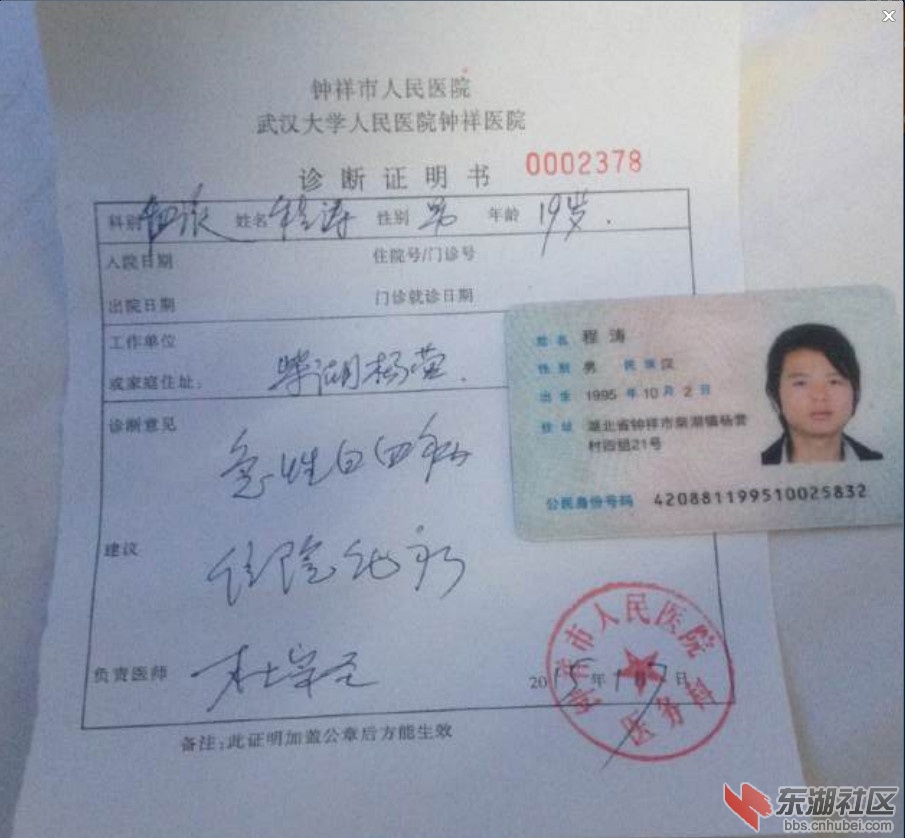 钟祥市人民医院
武汉大学人民医院钟祥医院
诊断证明书 0002378
科别 姓名 程涛 性别 男 年龄 19岁.
入院日期 住院号/门诊号
出院日期 门诊就诊日期
工作单位
或家庭住址: 柴湖杨营.
诊断意见
急性白血病
建议
住院化疗
负责医师
2015年1月7日
备注:此证明加盖公章后方能生效
姓名 程涛
性别 男 民族 汉
出生 1995年10月2日
住址 湖北省钟祥市柴湖镇杨营
村四组21号
公民身份号码 420881199510025832
钟祥市人民医院
医务科
东湖社区
bbs.cnhubei.com